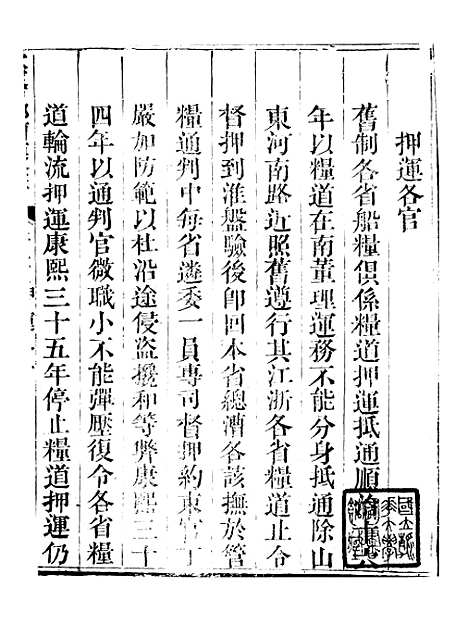 押運各官
舊制各省船糧俱係糧道押運抵通順
年以糧道在南董理運務不能分身抵通除山
東河南路近照舊遵行其江浙各省糧道止令
督押到淮盤驗後卽回本省總漕各該撫於管
糧通判中每省遴委一員專司督押約束官丁
嚴加防範以杜沿途侵盜攙和等弊康熙三十
四年以通判官微職小不能彈壓復令各省糧
道輪流押運康熙三十五年停止糧道押運仍